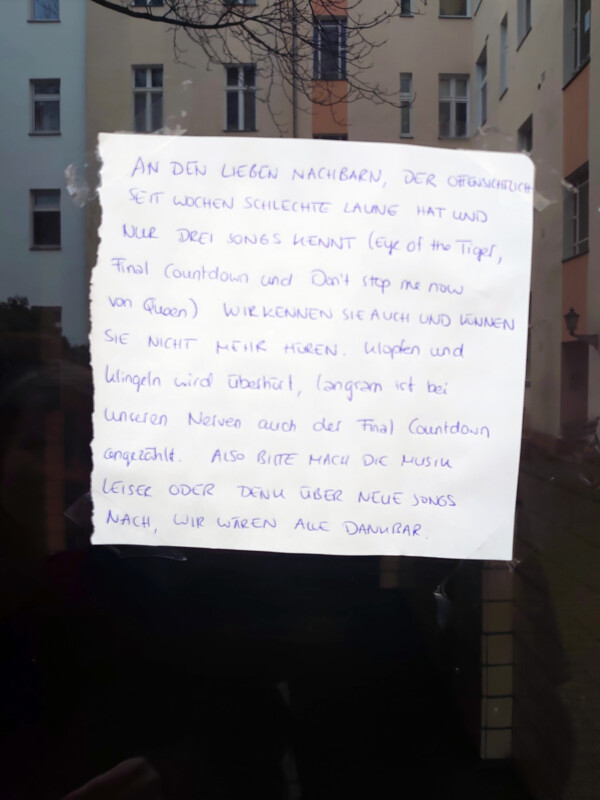 AN DEN LIEBEN NACHBARN, DER OFFENSICHTLICH
SEIT WOCHEN SCHLECHTE LAUNE HAT UND
NUR DREI SONGS KENNT (Eye of the Tiger,
Final Countdown und Don't stop me now
von Queen) WIR KENNEN SIE AUCH UND KÖNNEN
SIE NICHT MEHR HÖREN. Klopfen und
Klingeln wird überhört, langsam ist bei
unseren Nerven auch der Final Countdown
angezählt. ALSO BITTE MACH DIE MUSIK
LEISER ODER DENK ÜBER NEUE SONGS
NACH, WIR WÄREN ALLE DANKBAR.